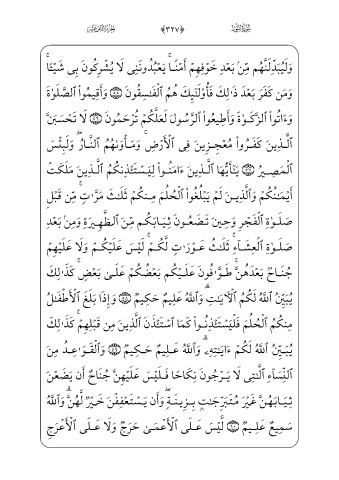 سُورَةُ النُّورِ ﴿٣٢٧﴾ الجزء الثامن عشر
وَلَيُبَدِّلَنَّهُم مِّنۢ بَعْدِ خَوْفِهِمْ أَمْنًاۚ يَعْبُدُونَنِى لَا يُشْرِكُونَ بِى شَيْـًٔاۚ
وَمَن كَفَرَ بَعْدَ ذَٰلِكَ فَأُو۟لَٰٓئِكَ هُمُ ٱلْفَٰسِقُونَ ۝ وَأَقِيمُوا۟ ٱلصَّلَوٰةَ
وَءَاتُوا۟ ٱلزَّكَوٰةَ وَأَطِيعُوا۟ ٱلرَّسُولَ لَعَلَّكُمْ تُرْحَمُونَ ۝ لَا تَحْسَبَنَّ
ٱلَّذِينَ كَفَرُوا۟ مُعْجِزِينَ فِى ٱلْأَرْضِۚ وَمَأْوَىٰهُمُ ٱلنَّارُۖ وَلَبِئْسَ
ٱلْمَصِيرُ ۝ يَٰٓأَيُّهَا ٱلَّذِينَ ءَامَنُوا۟ لِيَسْتَـْٔذِنكُمُ ٱلَّذِينَ مَلَكَتْ
أَيْمَٰنُكُمْ وَٱلَّذِينَ لَمْ يَبْلُغُوا۟ ٱلْحُلُمَ مِنكُمْ ثَلَٰثَ مَرَّٰتٍۚ مِّن قَبْلِ
صَلَوٰةِ ٱلْفَجْرِ وَحِينَ تَضَعُونَ ثِيَابَكُم مِّنَ ٱلظَّهِيرَةِ وَمِنۢ بَعْدِ
صَلَوٰةِ ٱلْعِشَآءِۚ ثَلَٰثُ عَوْرَٰتٍ لَّكُمْۚ لَيْسَ عَلَيْكُمْ وَلَا عَلَيْهِمْ
جُنَاحٌۢ بَعْدَهُنَّۚ طَوَّٰفُونَ عَلَيْكُم بَعْضُكُمْ عَلَىٰ بَعْضٍۚ كَذَٰلِكَ
يُبَيِّنُ ٱللَّهُ لَكُمُ ٱلْءَايَٰتِۗ وَٱللَّهُ عَلِيمٌ حَكِيمٌ ۝ وَإِذَا بَلَغَ ٱلْأَطْفَٰلُ
مِنكُمُ ٱلْحُلُمَ فَلْيَسْتَـْٔذِنُوا۟ كَمَا ٱسْتَـْٔذَنَ ٱلَّذِينَ مِن قَبْلِهِمْۚ كَذَٰلِكَ
يُبَيِّنُ ٱللَّهُ لَكُمْ ءَايَٰتِهِۦۗ وَٱللَّهُ عَلِيمٌ حَكِيمٌ ۝ وَٱلْقَوَٰعِدُ مِنَ
ٱلنِّسَآءِ ٱلَّٰتِى لَا يَرْجُونَ نِكَاحًا فَلَيْسَ عَلَيْهِنَّ جُنَاحٌ أَن يَضَعْنَ
ثِيَابَهُنَّ غَيْرَ مُتَبَرِّجَٰتٍۭ بِزِينَةٍۖ وَأَن يَسْتَعْفِفْنَ خَيْرٌ لَّهُنَّۗ وَٱللَّهُ
سَمِيعٌ عَلِيمٌ ۝ لَّيْسَ عَلَى ٱلْأَعْمَىٰ حَرَجٌ وَلَا عَلَى ٱلْأَعْرَجِ